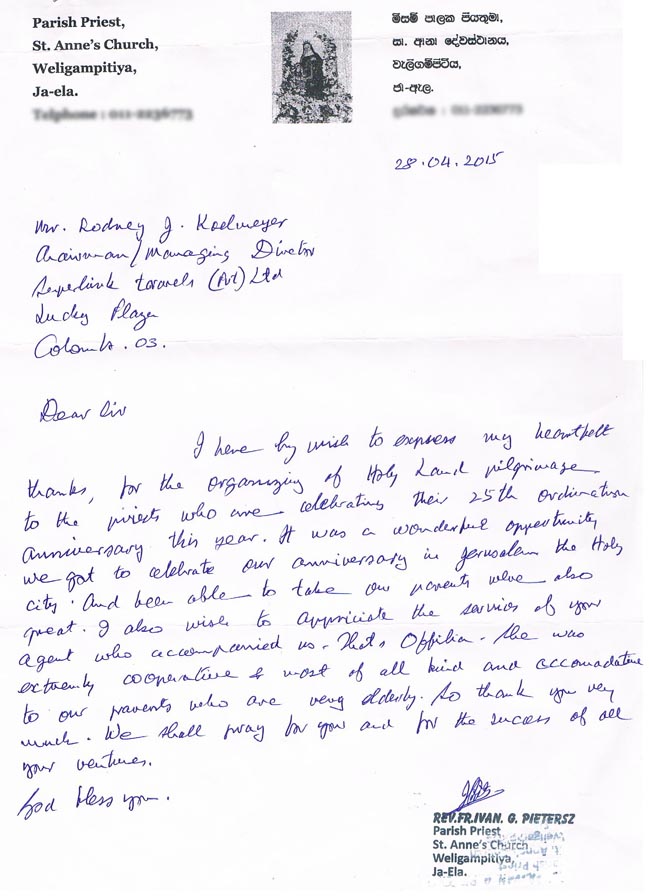 Parish Priest,
St. Anne's Church,
Weligampitiya,
Ja-ela.
මීසම් පාලක පියතුමා,
සා. ආනා දේවස්ථානය,
වැලිගම්පිටිය,
ජා-ඇල.
28.04.2015
Mr. Rodney J. Koelmeyer
Chairman/Managing Director
Superlink travels (Pvt) Ltd
Lucky Plaza
Colombo. 03.
Dear Sir
I here by wish to express my heartfelt
thanks, for the organizing of Holy Land pilgrimage
to the priests who are celebrating their 25th ordination
anniversary this year. It was a wonderful opportunity
we got to celebrate our anniversary in Jerusalem the Holy
city. And been able to take our parents were also
great. I also wish to appriciate the services of your
agent who accompanied us. That's Offilia. She was
extremly cooperative & most of all kind and accomadative
to our parents who are very elderly. So thank you very
much. We shall pray for you and for the success of all
your ventures.
God bless you.
REV.FR.IVAN. G. PIETERSZ
Parish Priest
St. Anne's Church,
Weligampitiya,
Ja-Ela.